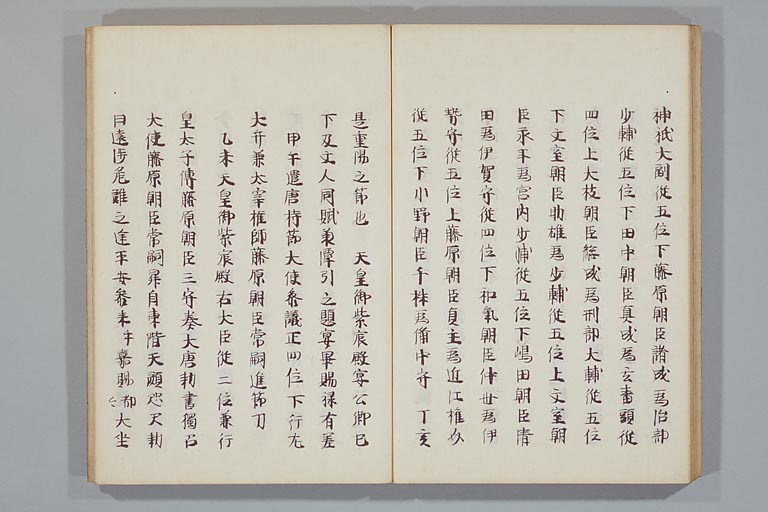 神祇大副従五位下藤原朝臣諸成為治部
少輔従五位下田中朝臣真成為玄蕃頭従
四位上大枝朝臣総成為刑部大輔従五位
下文室朝臣助雄為少輔従五位上文室朝
臣永年為宮内少輔従五位下嶋田朝臣清
田為伊賀守従四位下和氣朝臣仲世為伊
勢守従五位上藤原朝臣貞主為近江権介
従五位下小野朝臣千株為備中守　丁亥
是重陽之節也　天皇御紫宸殿宴公卿已
下及文人同賦之題宴畢賜禄有差
甲午遣唐持節大使参議正四位下行左
大弁兼太宰権帥藤原朝臣常嗣進節刀
乙未天皇御紫宸殿右大臣従二位兼行
皇太子傅藤原朝臣三守奏大唐勅書独召
大使藤原朝臣常嗣昇自東階天顔咫尺勅
曰遠渉危難之途平安参来嘉賜都大坐